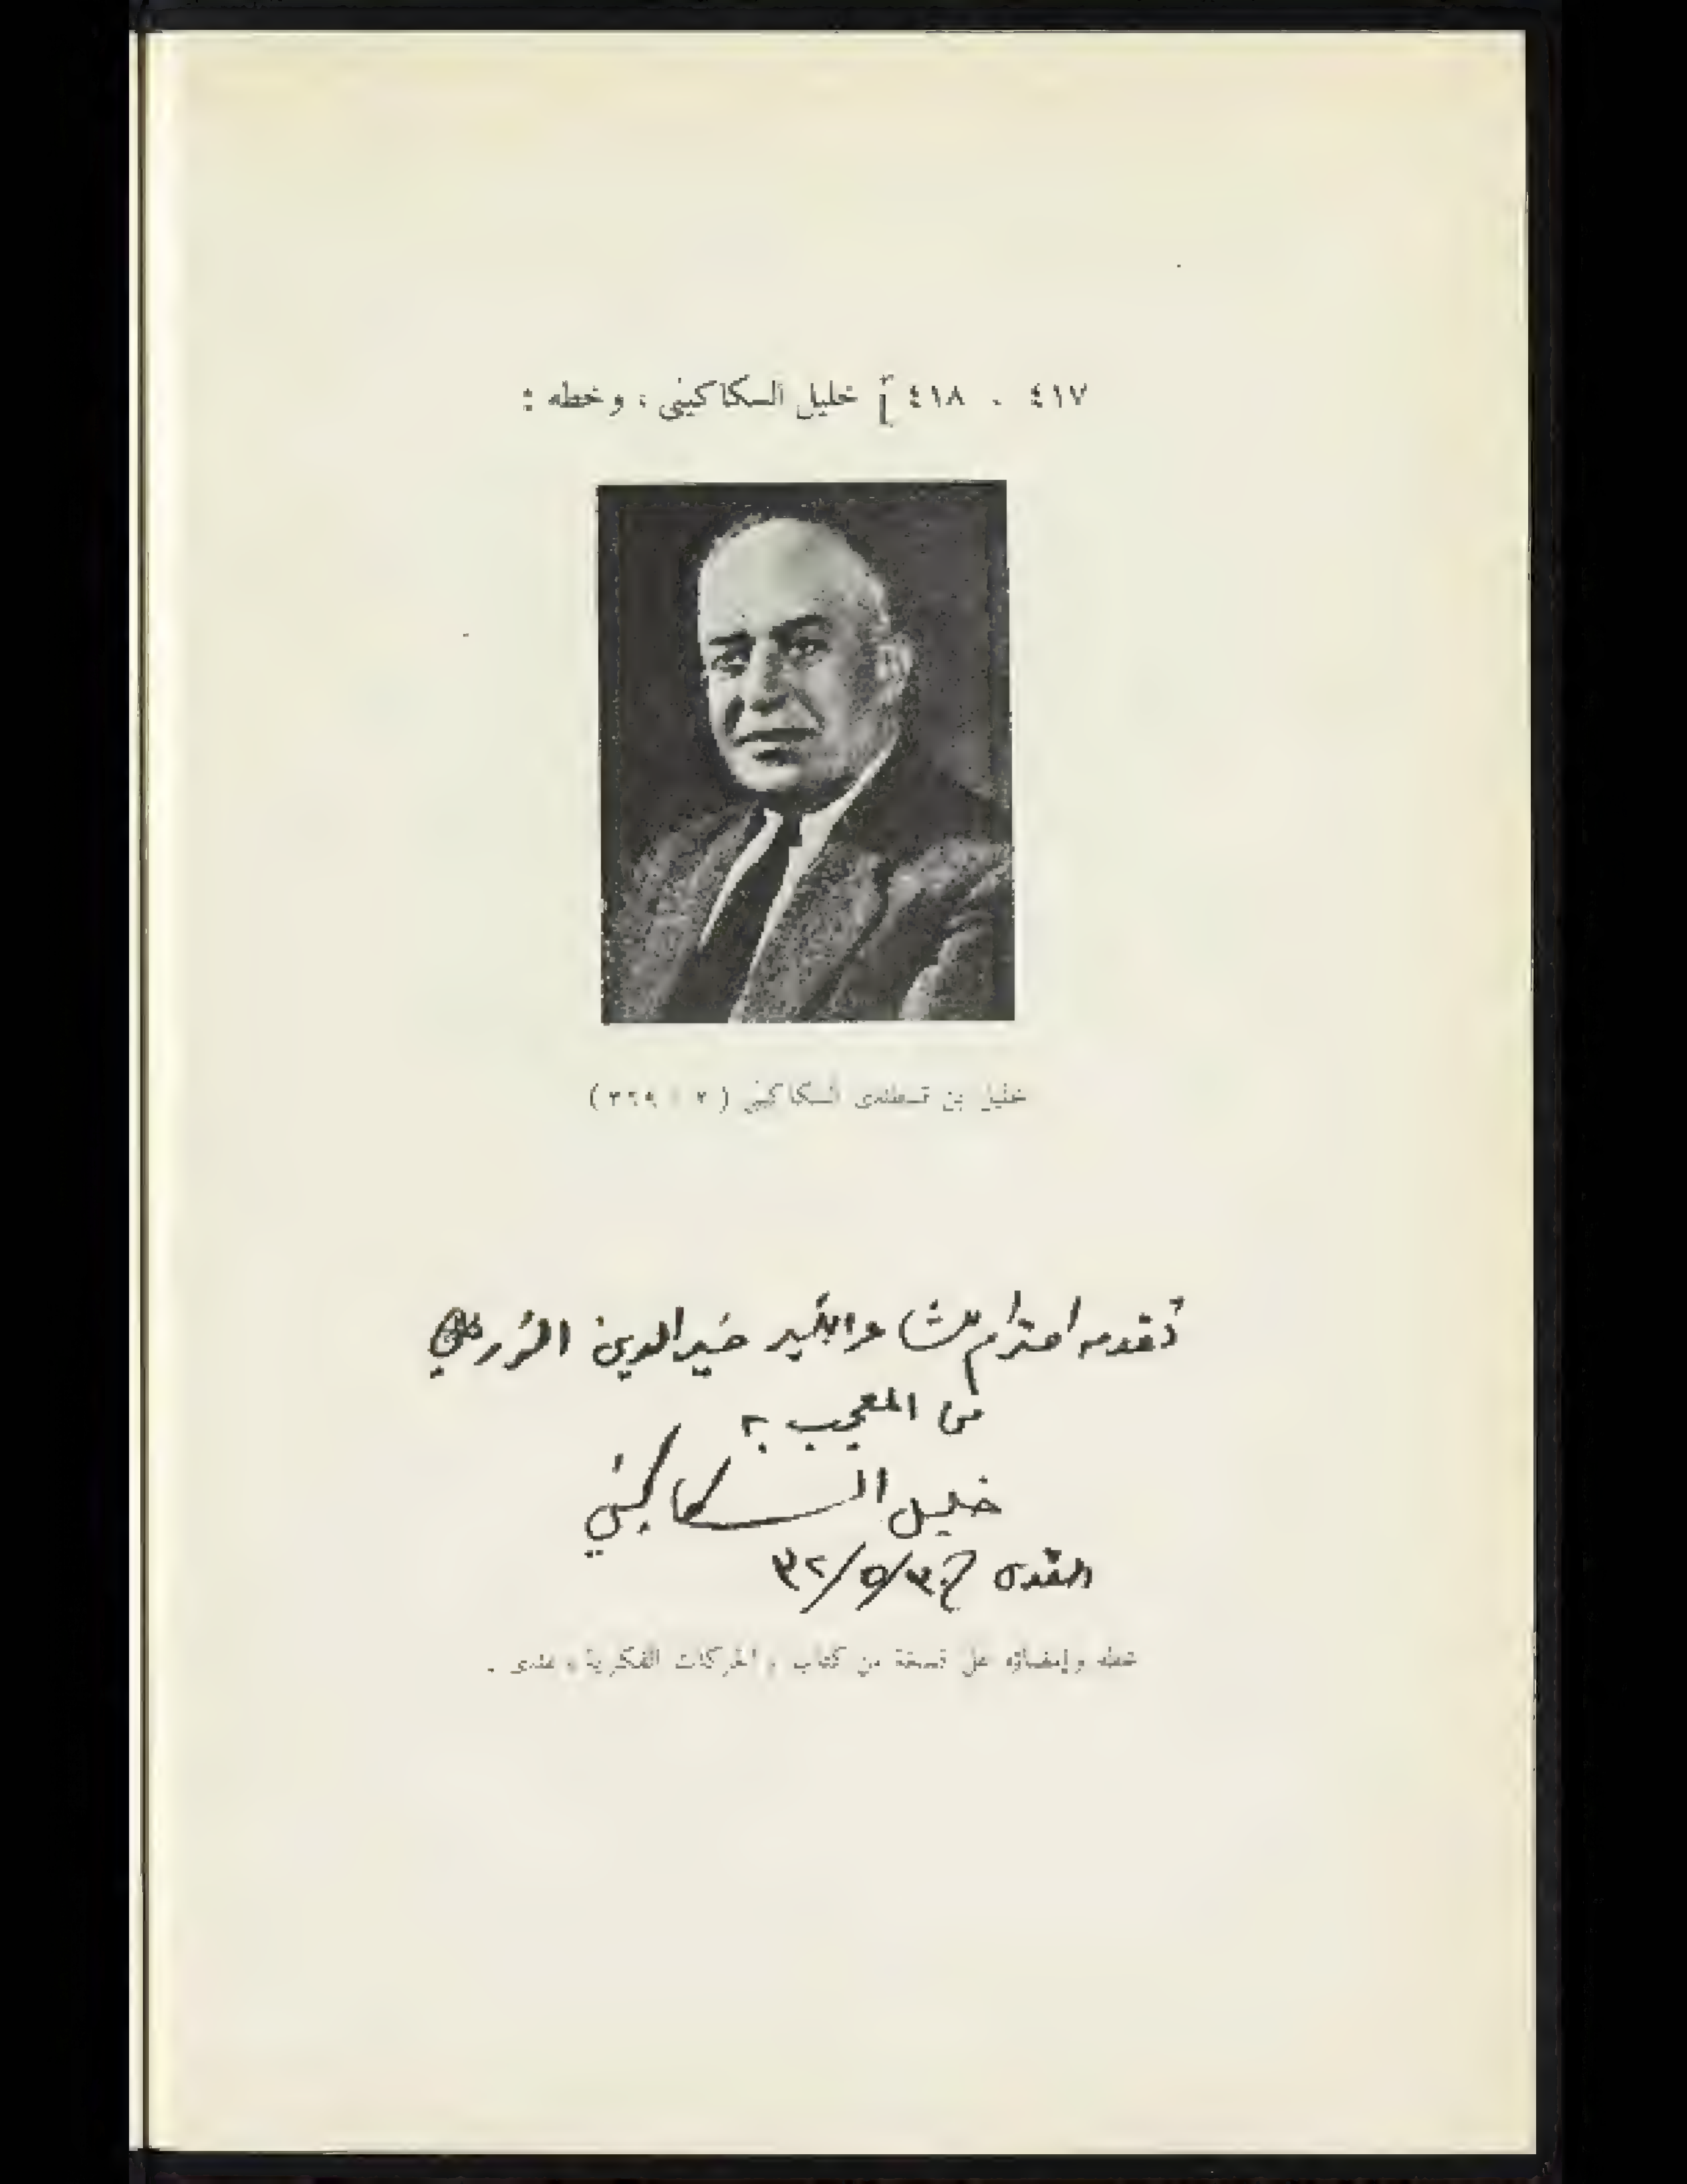 ٤١٧ ، ٤١٨ [ خليل السكاكيني ، وخطه :
خليل بن قسطندي السكاكيني ( ٢ : ٣٦٩ )
تقدمة احترام للشاعر الكبير خير الدين الزركلي
من المعجب به
خليل السكاكيني
القدس في ٣/٥/٣٢
خطه وإمضاؤه على نسخة من كتاب « الحركات الفكرية » عندي .